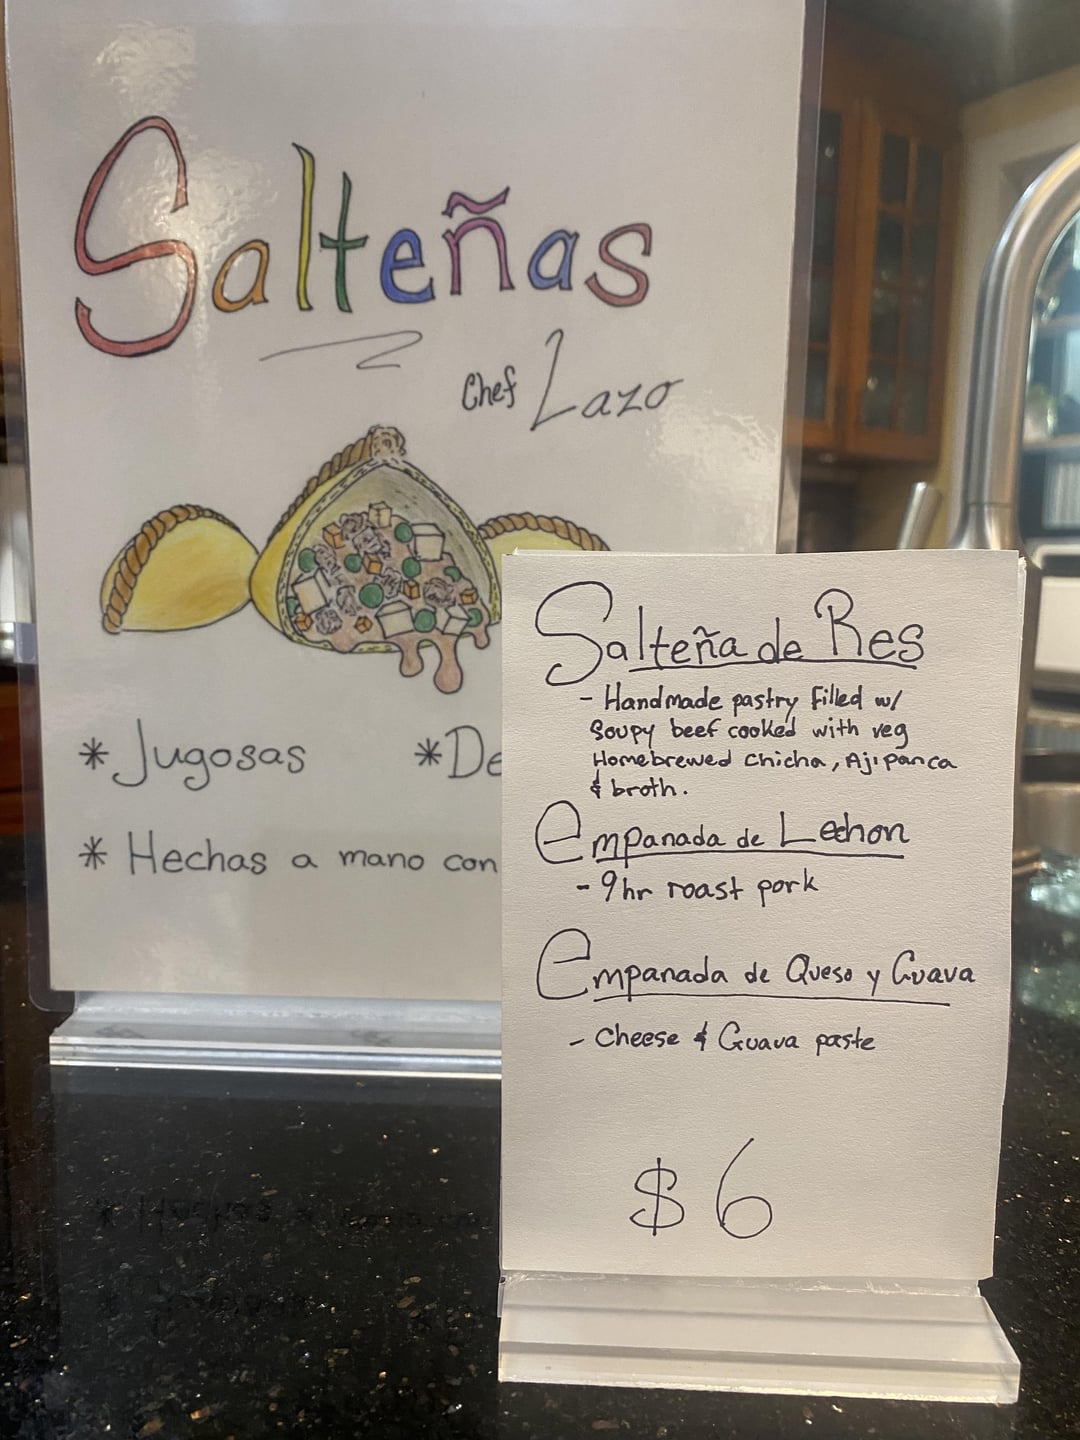 Salteñas
Chef Lazo
* Jugosas * De
* Hechas a mano con
Salteña de Res
- Handmade pastry filled w/
Soupy beef cooked with veg
Homebrewed chicha, Aji panca
& broth.
Empanada de Lechon
- 9hr roast pork
Empanada de Queso y Guava
- Cheese & Guava paste
$6